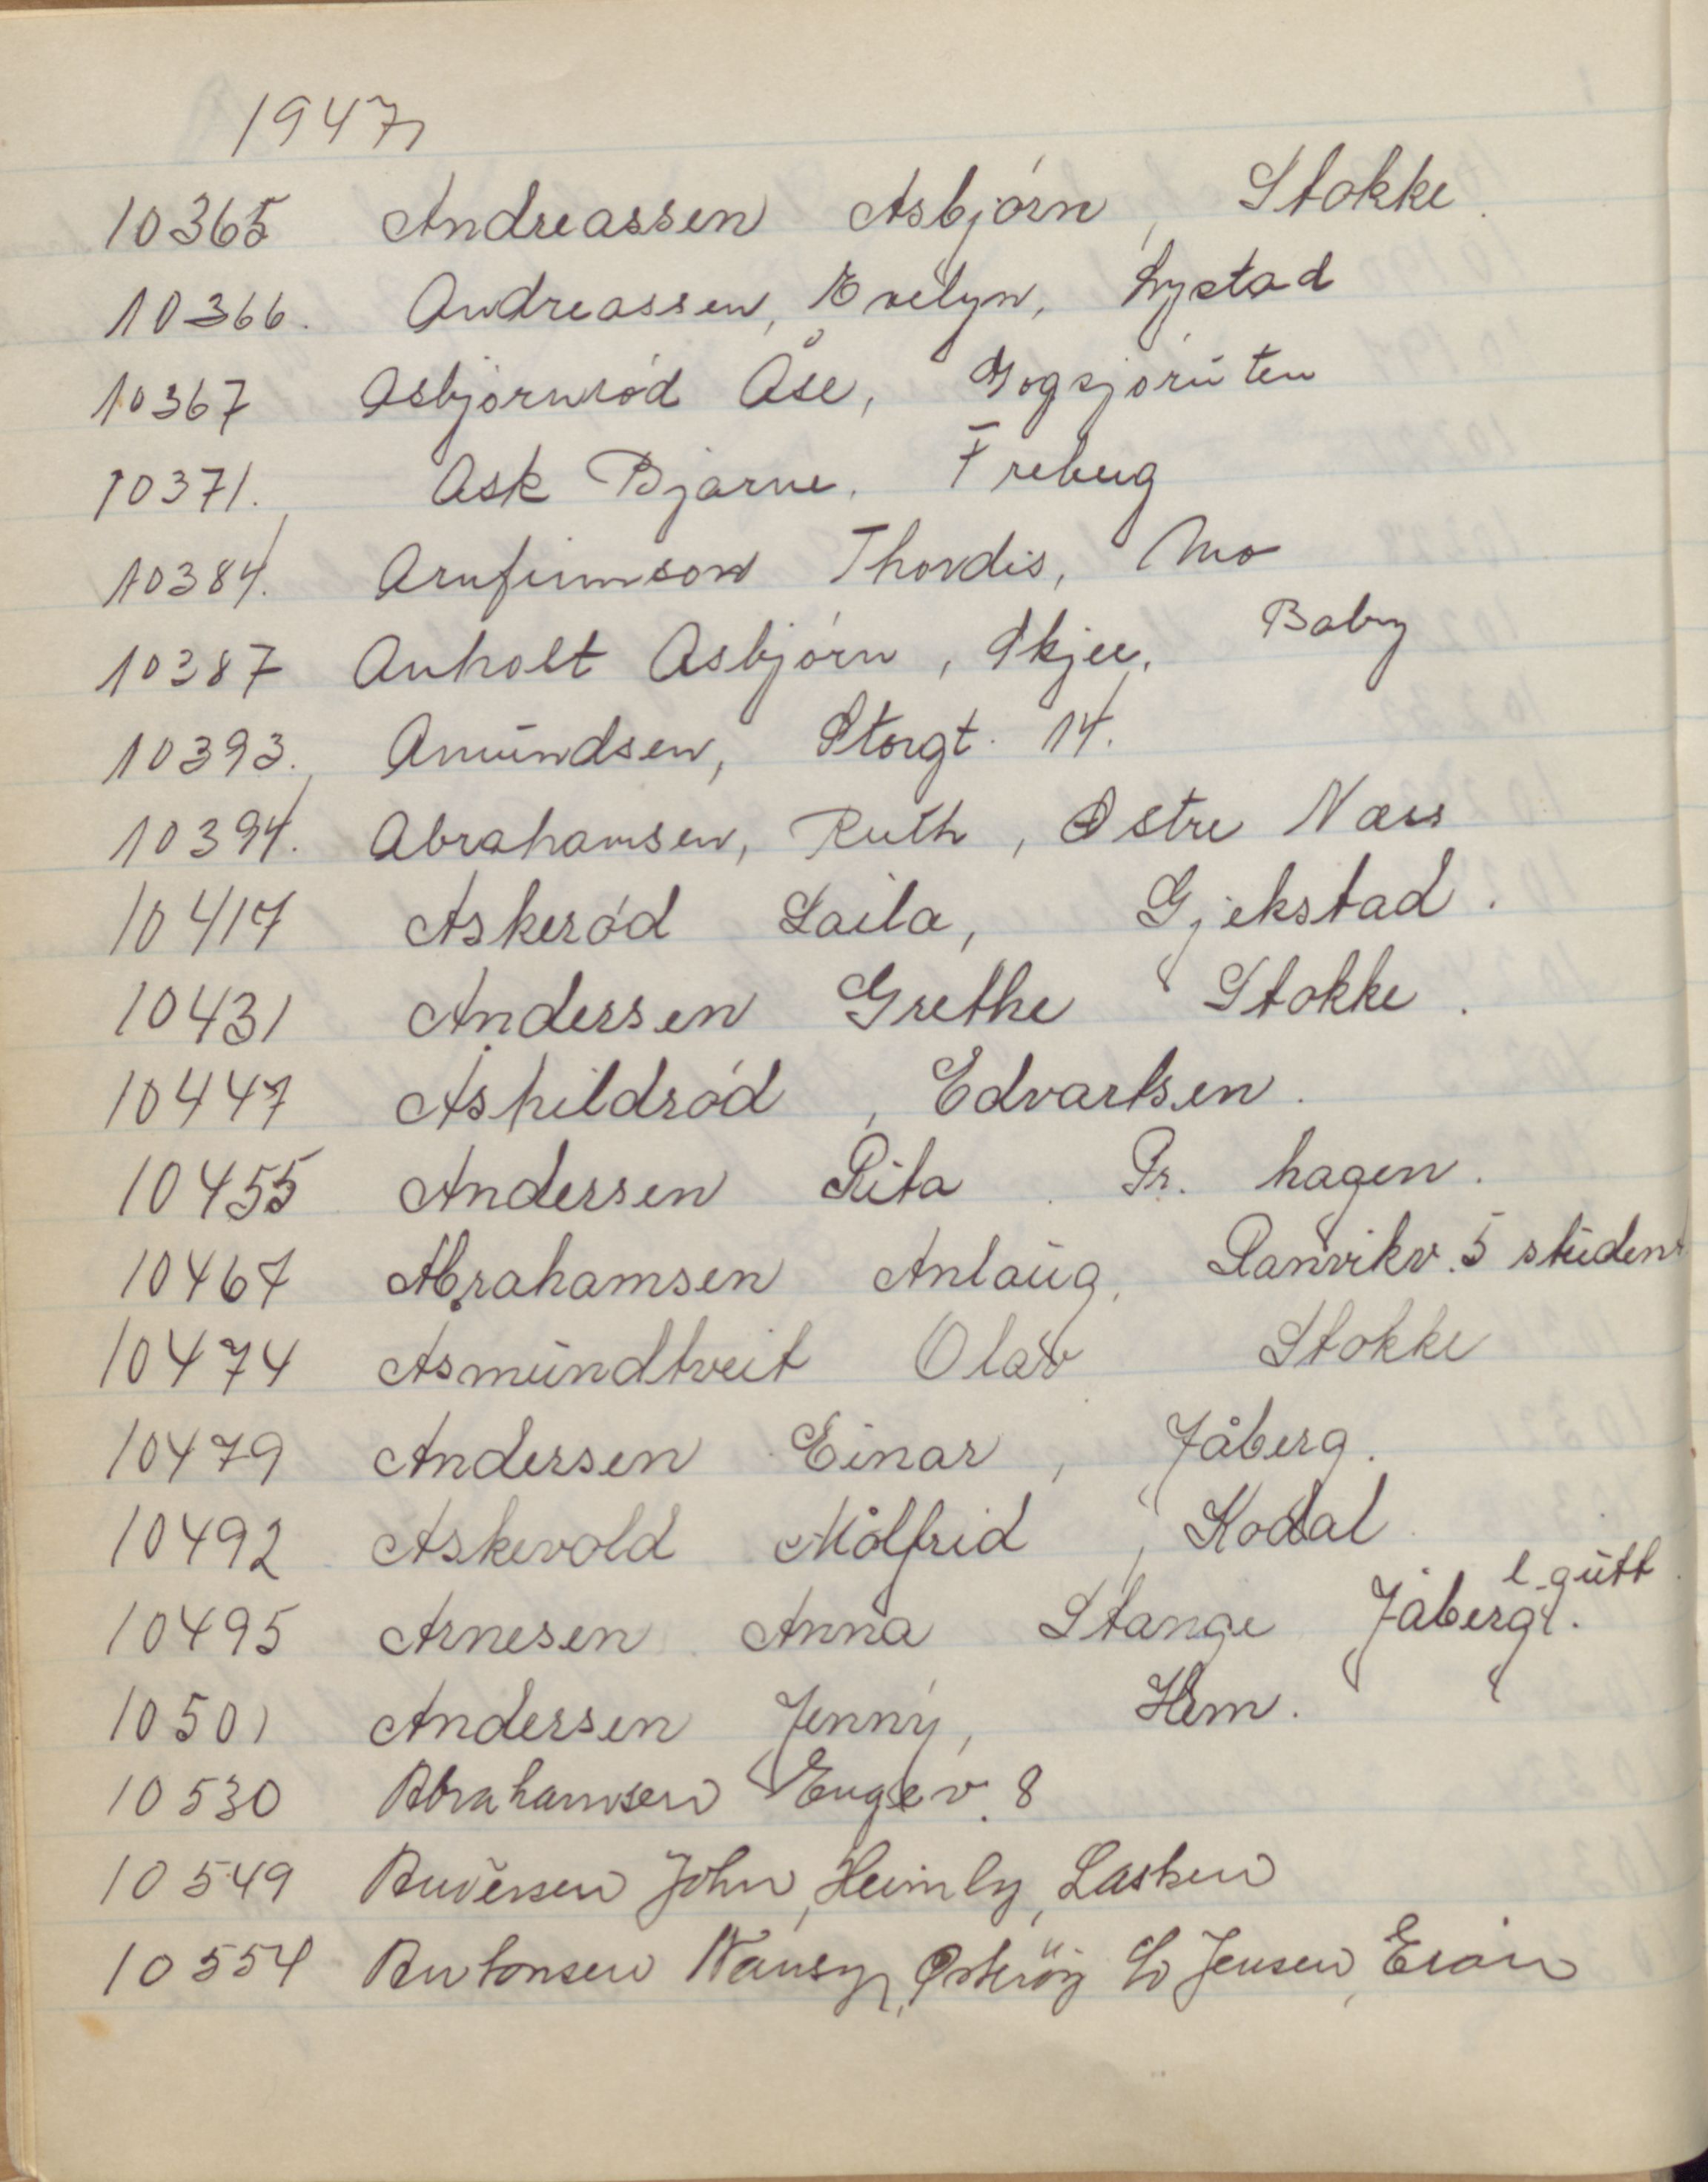 1947
10365 Andreassen Asbjörn, Stokke.
10366. Andreassen, Evelyn, Lystad
10367 Asbjörnröd Åse, Gogsjöruten
10371. Ask Bjarne. Freberg
10384. Arnfinnson Thordis, Mo
10387 Anholt Asbjörn, Skjee. Baby
10393. Amundsen, Storgt. 14.
10394. Abrahamsen, Ruth, Østre Næss
10417 Askeröd Laila, Gjekstad.
10431 Andersen Grethe Stokke.
10447 Åshildröd, Edvartsen.
10455 Andersen Rita. Pr. hagen.
10467 Abrahamsen Anlaug, Ranvikv. 5 student
10474 Asmundtveit Olav Stokke
10479 Andersen Einar, Jåberg.
10492 Askevold Målfrid, Kodal
10495 Arnesen Anna Stange Jåberg. l.gutt.
10501 Andersen Jenny, Hem.
10530 Abrahamsen Engev. 8
10549 Andersen John, Heimly, Lasken
10554 Antonsen Nansy, Østeröy Jensen,